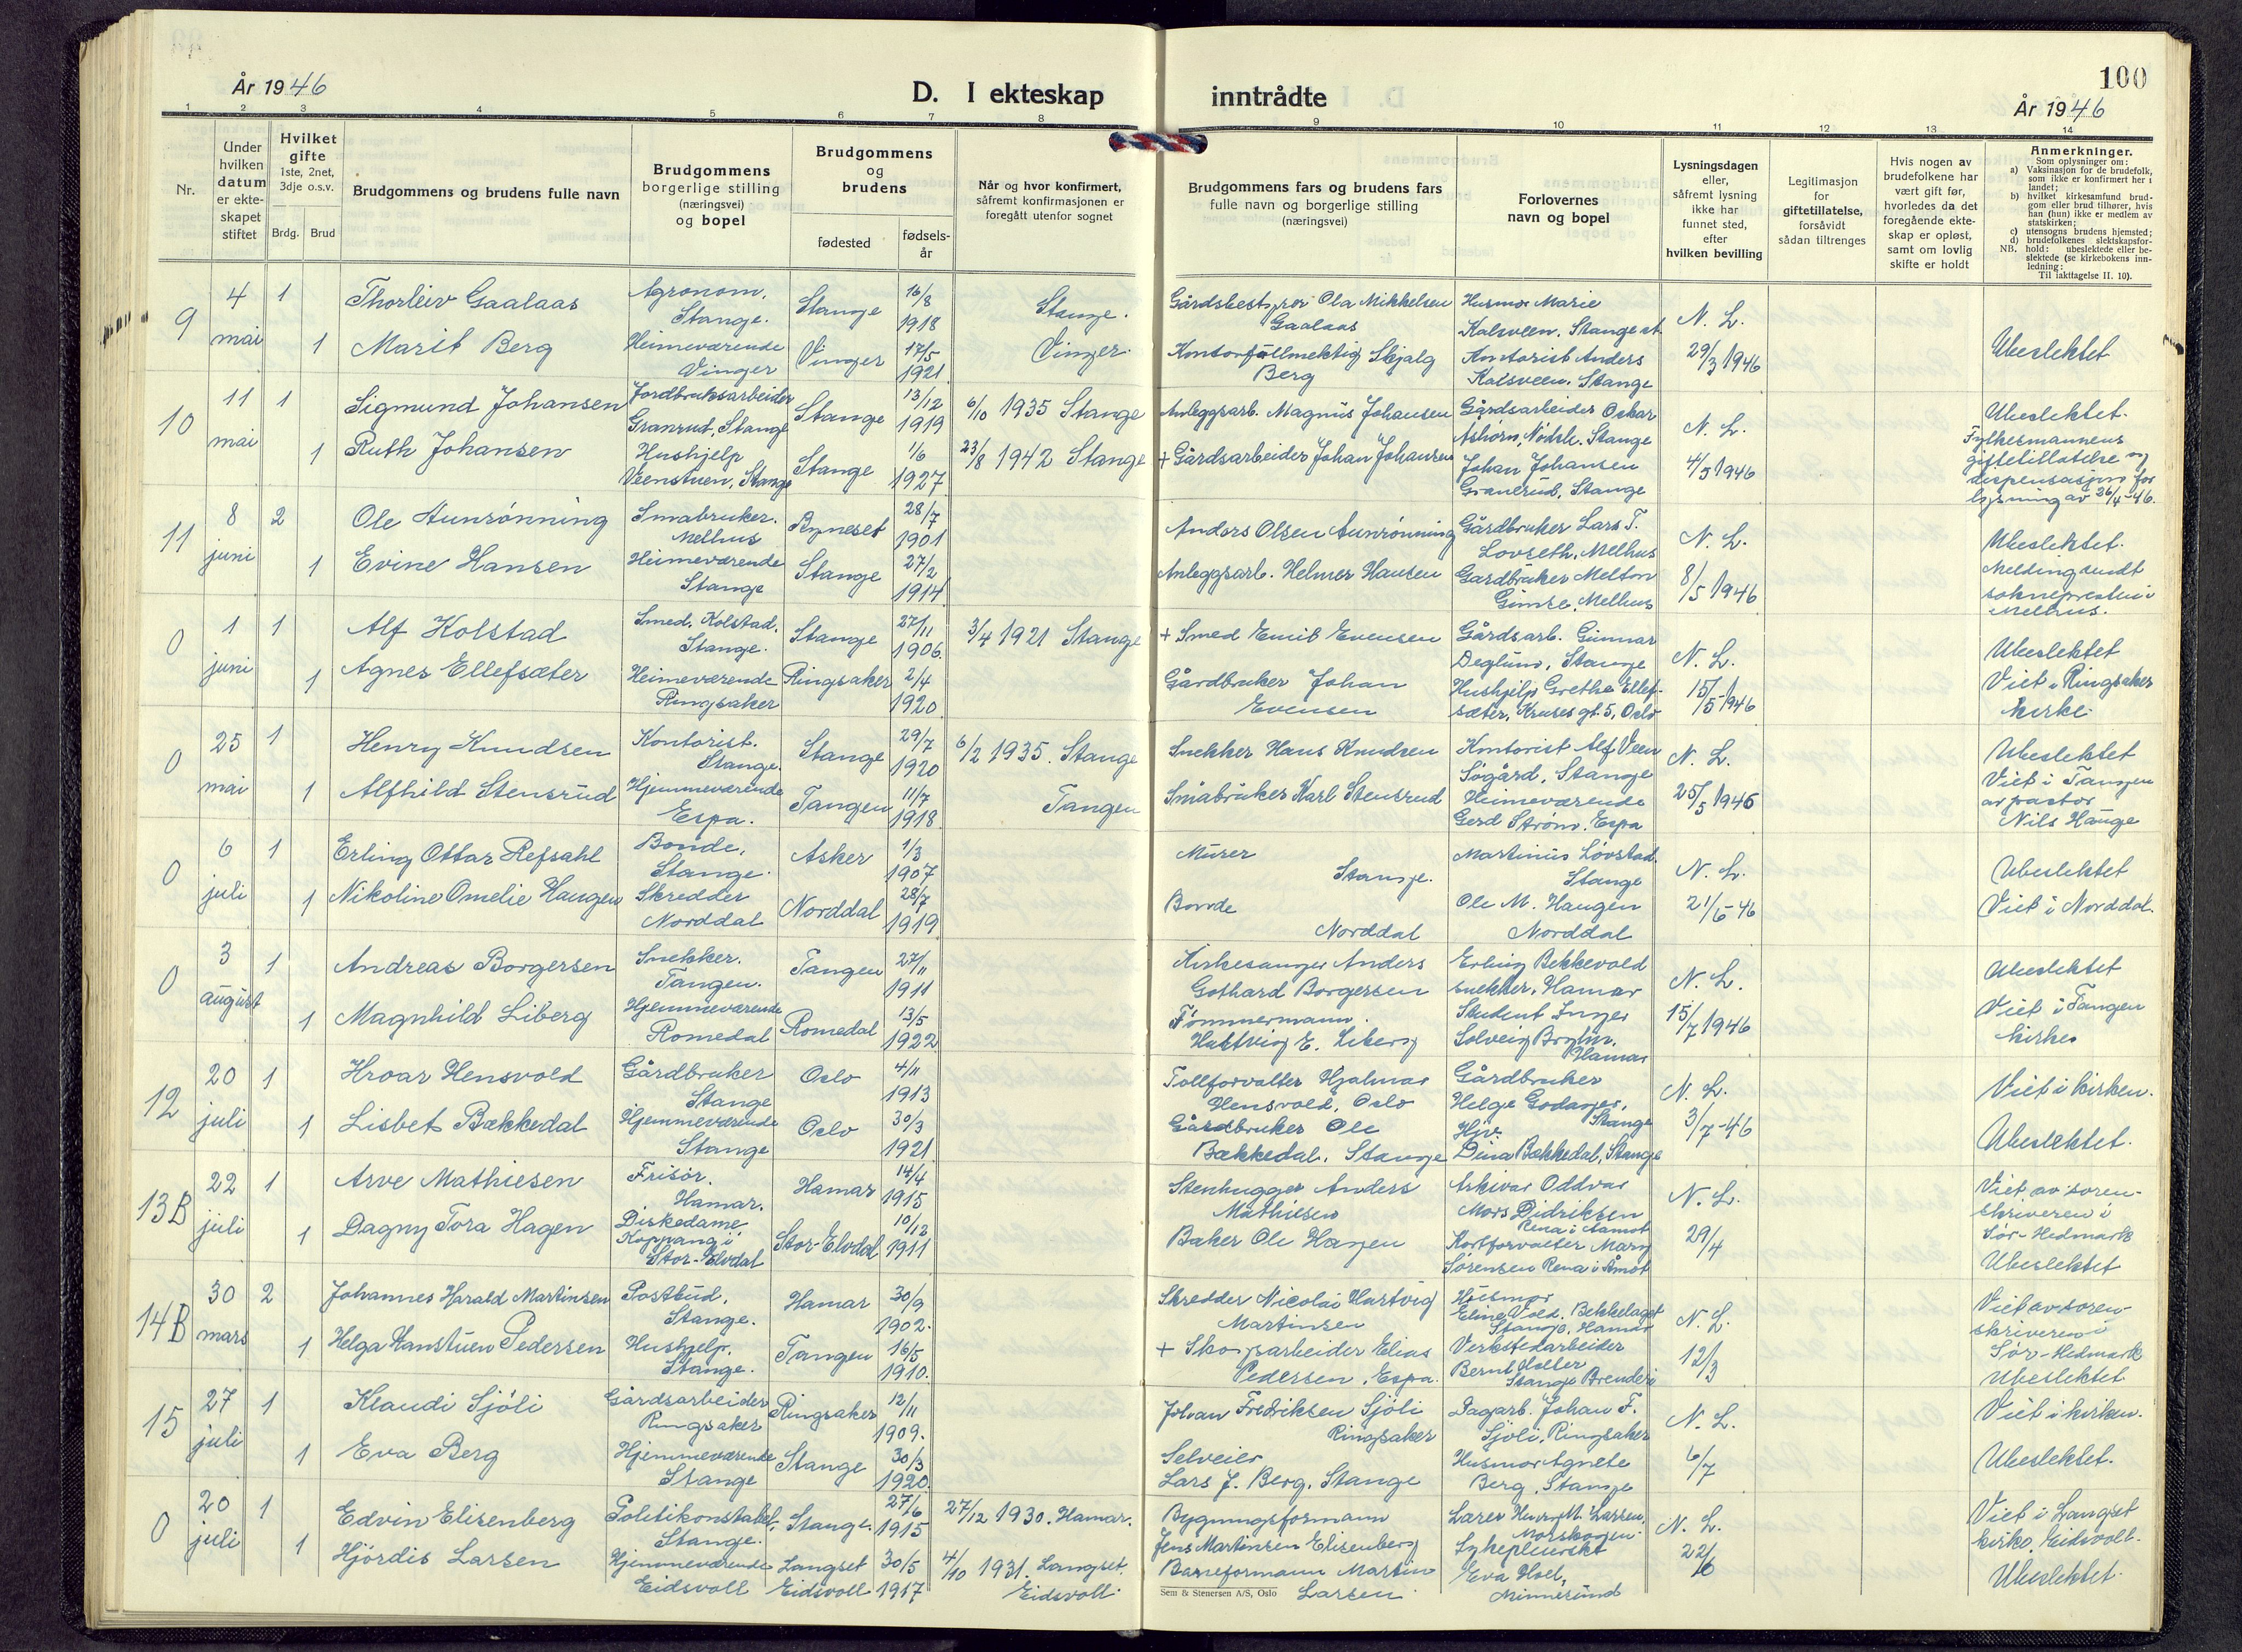 År 1946
D. I ekteskap inntrådte
100
År 1946
1 2 3 4 5 6 7 8 9 10 11 12 13 14
Nr.
Under hvilken datum er ekteskapet stiftet
Hvilket gifte 1ste, 2net, 3dje o.s.v.
Brdg. Brud
Brudgommens og brudens fulle navn
Brudgommens borgerlige stilling (næringsvei) og bopel
Brudgommens og brudens
fødested
fødsels-år
Når og hvor konfirmert, såfremt konfirmasjonen er foregått utenfor sognet
Brudgommens fars og brudens fars fulle navn og borgerlige stilling (næringsvei)
Forlovernes navn og bopel
Lysningsdagen eller, såfremt lysning ikke har funnet sted, efter hvilken bevilling
Legitimasjon for giftetillatelse, forsåvidt sådan tiltrenges
Hvis nogen av brudefolkene har vært gift før, hvorledes da det foregående ekteskap er opløst, samt om lovlig skifte er holdt
Anmerkninger.
Som oplysninger om:
a) Vaksinasjon for de brudefolk, som ikke er konfirmert her i landet;
b) hvilket kirkesamfund brudgom eller brud tilhører, hvis han (hun) ikke er medlem av statskirken;
c) utensogns brudens hjemsted;
d) brudefolkenes slektskapsforhold: ubeslektede eller beslektede (se kirkebokens innledning;
NB. Til iakttagelse II. 10).
9 4 mai 1 Thorleiv Gaalaas Agronom, Stange. Stange 16/8 1918 Stange. Gårdsbestyrer Ola Mikkelsen Gaalaas Husmor Marie Kalsveen, Stange st. N. L.
1 Marit Berg Heimeværende Vinger Vinger 17/5 1921 Vinger. Kontorfullmektig Skjalg Berg Kontorist Anders Kalsveen, Stange 29/3 1946 Ubeslektet
10 11 mai 1 Sigmund Johansen Jordbruksarbeider Granrud, Stange Stange 13/12 1919 6/10 1935 Stange Anleggsarb. Magnus Johansen Gårdsarbeider Oskar Asbørn, Stange N. L. Ubeslektet.
1 Ruth Johansen Hushjelp Veenstuen, Stange Stange 1/6 1927 23/8 1942 Stange + Gårdsarbeider Johan Johansen Johan Johansen Granerud, Stange 4/5 1946 Fylkesmannens giftetillatelse og dispensasjon for lysning av 26/4-46.
11 8 juni 2 Ole Aunrønning Småbruker. Melhus Byneset 28/7 1901 Anders Olsen Aunrønning Gårdbruker Lars T. Lovseth, Melhus N. L. Ubeslektet.
1 Evine Hansen Heimeværende Stange Stange 27/2 1914 Anleggsarb. Helmer Hansen Gardbruker Melton Gimse, Melhus 8/5 1946 Melding sendt soknepresten i Melhus.
0 1 juni 1 Alf Kolstad Smed, Kolstad, Stange. Stange 27/11 1906. 3/4 1921 Stange + Smed Emil Evensen Gårdsarb. Gunnar Deglum, Stange N. L. Ubeslektet
1 Agnes Ellefsæter Heimeværende Ringsaker Ringsaker 2/4 1920 Gårdbruker Johan Evensen Hushjelp Grethe Ellefsæter, Kruses gt. 5, Oslo 15/5 1946 Viet i Ringsaker kirke
0 25 mai 1 Henry Knudsen Kontorist. Stange. Stange 29/7 1920 6/2 1935. Stange Snekker Hans Knudsen Kontorist Alf Veen Søgård, Stange N. L. Ubeslektet
1 Alfhild Stensrud Hjemmeværende Espa. Tangen 11/7 1918 Tangen Småbruker Karl Stensrud Heimeværende Gerd Strøm. Espa 25/5 1946 Viet i Tangen av pastor Nils Hauge
0 6 juli 1 Erling Ottar Refsahl Bonde, Stange. Asker 1/3 1907 Murer Stange. Martinus Løvstad. Stange N. L. Ubeslektet
1 Nikoline Omelie Haugen Skredder Norddal Norddal 28/7 1919 Bonde Norddal Ole M. Haugen Norddal 21/6-46 Viet i Norddal.
0 3 august 1 Andreas Borgersen Snekker. Tangen. Tangen 27/11 1911 Kirkesanger Anders Gothard Borgersen Erling Bekkevold snekker, Hamar N. L. Ubeslektet
1 Magnhild Liberg Hjemmeværende Romedal Romedal 13/5 1922 Tømmermann. Hartvig E. Liberg Student Inger Solveig Bryhn. Hamar 15/7 1946 Viet i Tangen kirke
12 20 juli 1 Hroar Hensvold Gårdbruker Stange Oslo 4/11 1913 Tollforvalter Hjalmar Hensvold, Oslo Gårdbruker Helge Godager, Stange N. L. Viet i kirken.
1 Lisbet Bækkedal Hjemmeværende Stange Oslo 30/3 1921 Gårdbruker Ole Bækkedal, Stange Hjv. Dina Bækkedal, Stange 3/7-46 Ubeslektet.
13B 22 juli 1 Arve Mathiesen Frisør. Hamar. Hamar 14/4 1915 Stenhugger Anders Mathiesen Arkivar Oddvar Mors Didriksen Rena i Aamot N. L. Viet av sorenskriveren i Sør-Hedmark
1 Dagny Tora Hagen Diskedame Koppang i Stor-Elvdal Stor-Elvdal 10/12 1911 Baker Ole Hagen Kortforvalter Mary Sørensen Rena i Åmot 29/4 Ubeslektet
14B 30 mars 2 Johannes Harald Martinsen Postbud, Stange. Hamar 30/9 1902. Skredder Nicolai Hartvig Martinsen Husmor Eline Vold, Bekkelaget Stange, Hamar N. L. Viet av sorenskriveren i Sør-Hedmark
1 Helga Hanstuen Pedersen Hushjelp. Stange. Tangen 16/5 1910. + Skogsarbeider Elias Pedersen, Espa. Verkstedarbeider Bernt Holter Stange Brenderi 12/3 Ubeslektet
15 27 juli 1 Klaudi Sjöli Gårdsarbeider Ringsaker Ringsaker 12/11 1909. Johan Fredriksen Sjöli Ringsaker Dagarb. Johan F. Sjöli, Ringsaker N. L. Viet i kirken.
1 Eva Berg Hjemmeværende Stange Stange 30/3 1920. Selveier Lars J. Berg, Stange Husmor Agnete Berg, Stange 6/7 Ubeslektet.
0 20 juli 1 Edvin Elisenberg Politikonstabel, Stange. Stange. 27/6 1915 27/12 1930. Hamar. Bygningsformann Jens Martinsen Elisenberg Lærer Henry M. Larsen, Morskogen. N. L. Viet i Langset kirke, Eidsvoll.
1 Hjördis Larsen Hjemmeværende Eidsvoll Langset Eidsvoll 30/5 1917 4/10 1931. Langset, Eidsvoll. Baneformann Martin Larsen. Sykepleierske Eva Hoel, Minnesund 22/6 Ubeslektet.
Sem & Stenersen A/S, Oslo